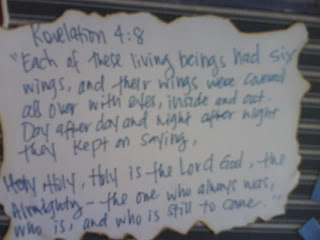 Revelation 4:8
"Each of these living beings had six
wings, and their wings were covered
all over with eyes, inside and out.
Day after day and night after night
they kept on saying,
Holy Holy, Holy is the Lord God, the
Almighty -- the one who always was,
who is, and who is still to come."